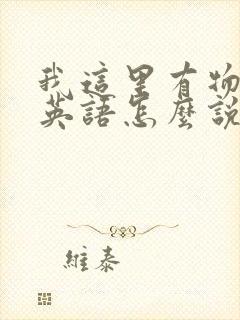 我這里有物
英語怎麼說
維泰